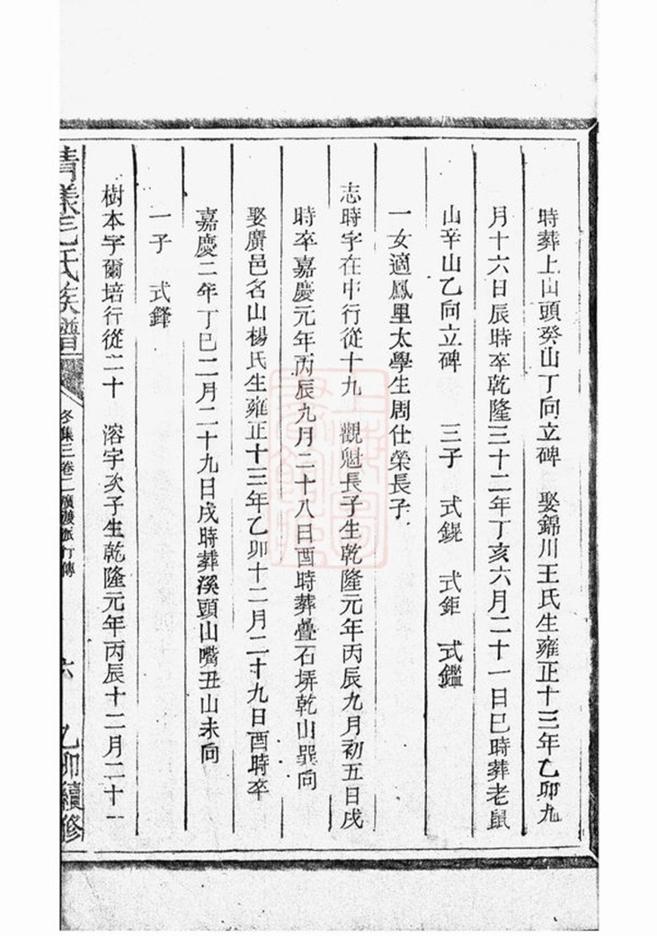 時葬上山頭癸山丁向立碑　娶錦川王氏生雍正十三年乙卯九
月十六日辰時卒乾隆三十二年丁亥六月二十一日巳時葬老鼠
山辛山乙向立碑　三子　式鋧　式鉅　式鑑
一女適鳳里太學生周仕榮長子
志時字在中行從十九　觀魁長子生乾隆元年丙辰九月初五日戌
時卒嘉慶元年丙辰九月二十八日酉時葬疊石塝乾山巽向
娶廣邑名山楊氏生雍正十三年乙卯十二月二十九日酉時卒
嘉慶二年丁巳二月二十九日戌時葬溪頭山嘴丑山未向
一子　式鋒
樹本字爾培行從二十　溶字次子生乾隆元年丙辰十二月二十一
清漾毛氏族譜　冬集三卷二　派行傳　六　乙卯續修